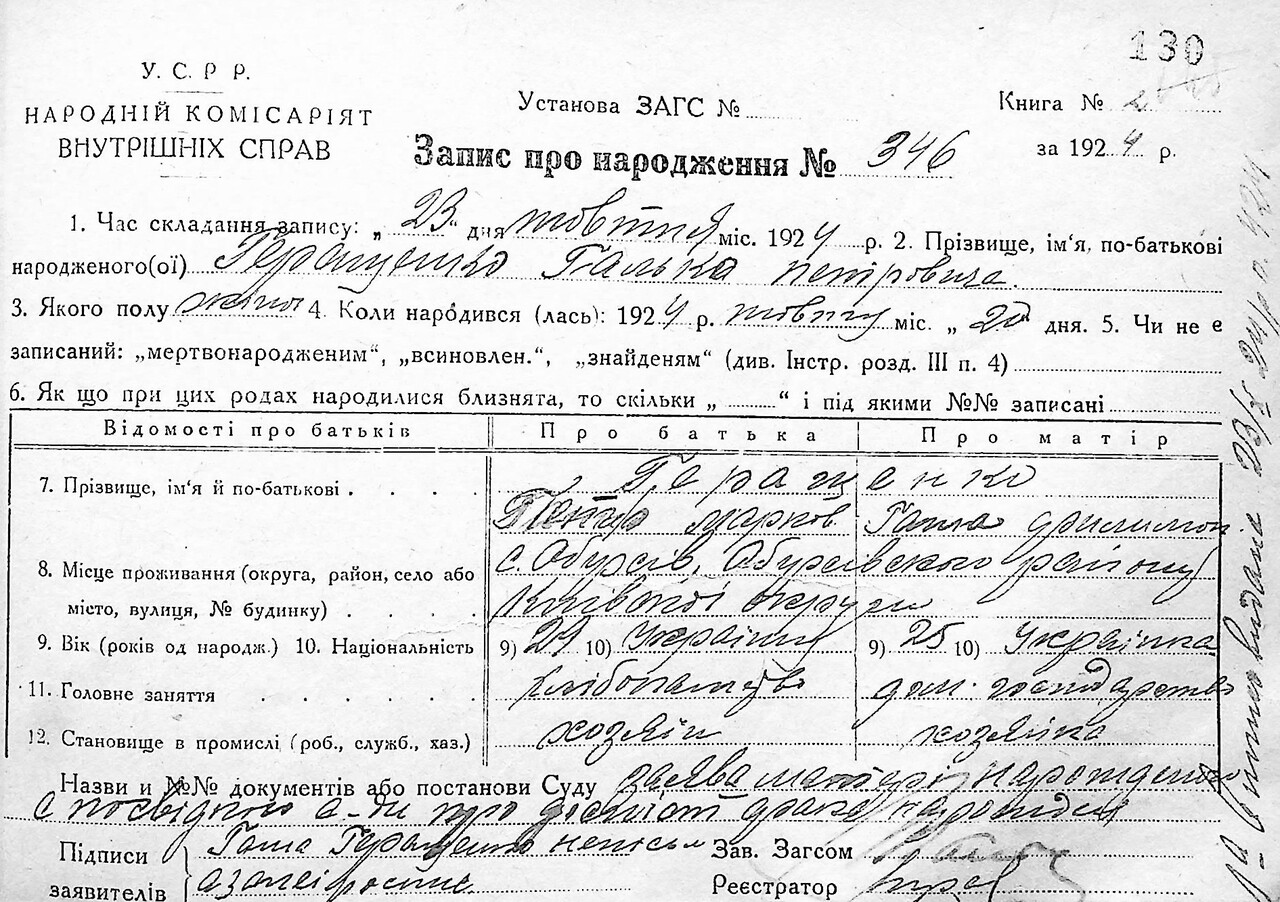 130
У. С. Р Р.
НАРОДНІЙ КОМІСАРІЯТ
ВНУТРІШНІХ СПРАВ
Установа ЗАГС №
Книга № 2
Запис про народження № 346
за 1924 р.
1. Час складання запису: „23“ дня жовтня міс. 1924 р. 2. Прізвище, ім‘я, по-батькові
народженого(ої) Геращенко Галька петровича
3. Якого полу жіноч 4. Коли народився (лась): 1924 р. жовтня міс. „20“ дня. 5. Чи не є
записаний: „мертвонародженим“, „всиновлен.“, „знайденям“ (див. Інстр. розд. III п. 4)
6. Як що при цих родах народилися близнята, то скільки „ “ і під якими №№ записані
Відомості про батьків Про батька Про матір
7. Прізвище, ім‘я й по-батькові . . . . Геращенко
Петро марков. Ганна филимон.
8. Місце проживання (округа, район, село або с. Обухів, Обухівського району
місто, вулиця, № будинку) . . . . Київської округи
9. Вік (років од народж.) 10. Національність 9) 29 10) Українец 9) 25 10) Українка
11. Головне заняття . . . . . хлібопашество дом. господарство
12. Становище в промислі (роб., служб., хаз.) хозяїн хозяйка
Назви и №№ документів або постанови Суду заява матері
с посвідкою с-ди про
Підписи Ганна Геращенко неписьм Зав. Загсом
заявителів Реєстратор
видана 23/X 24 р. 424